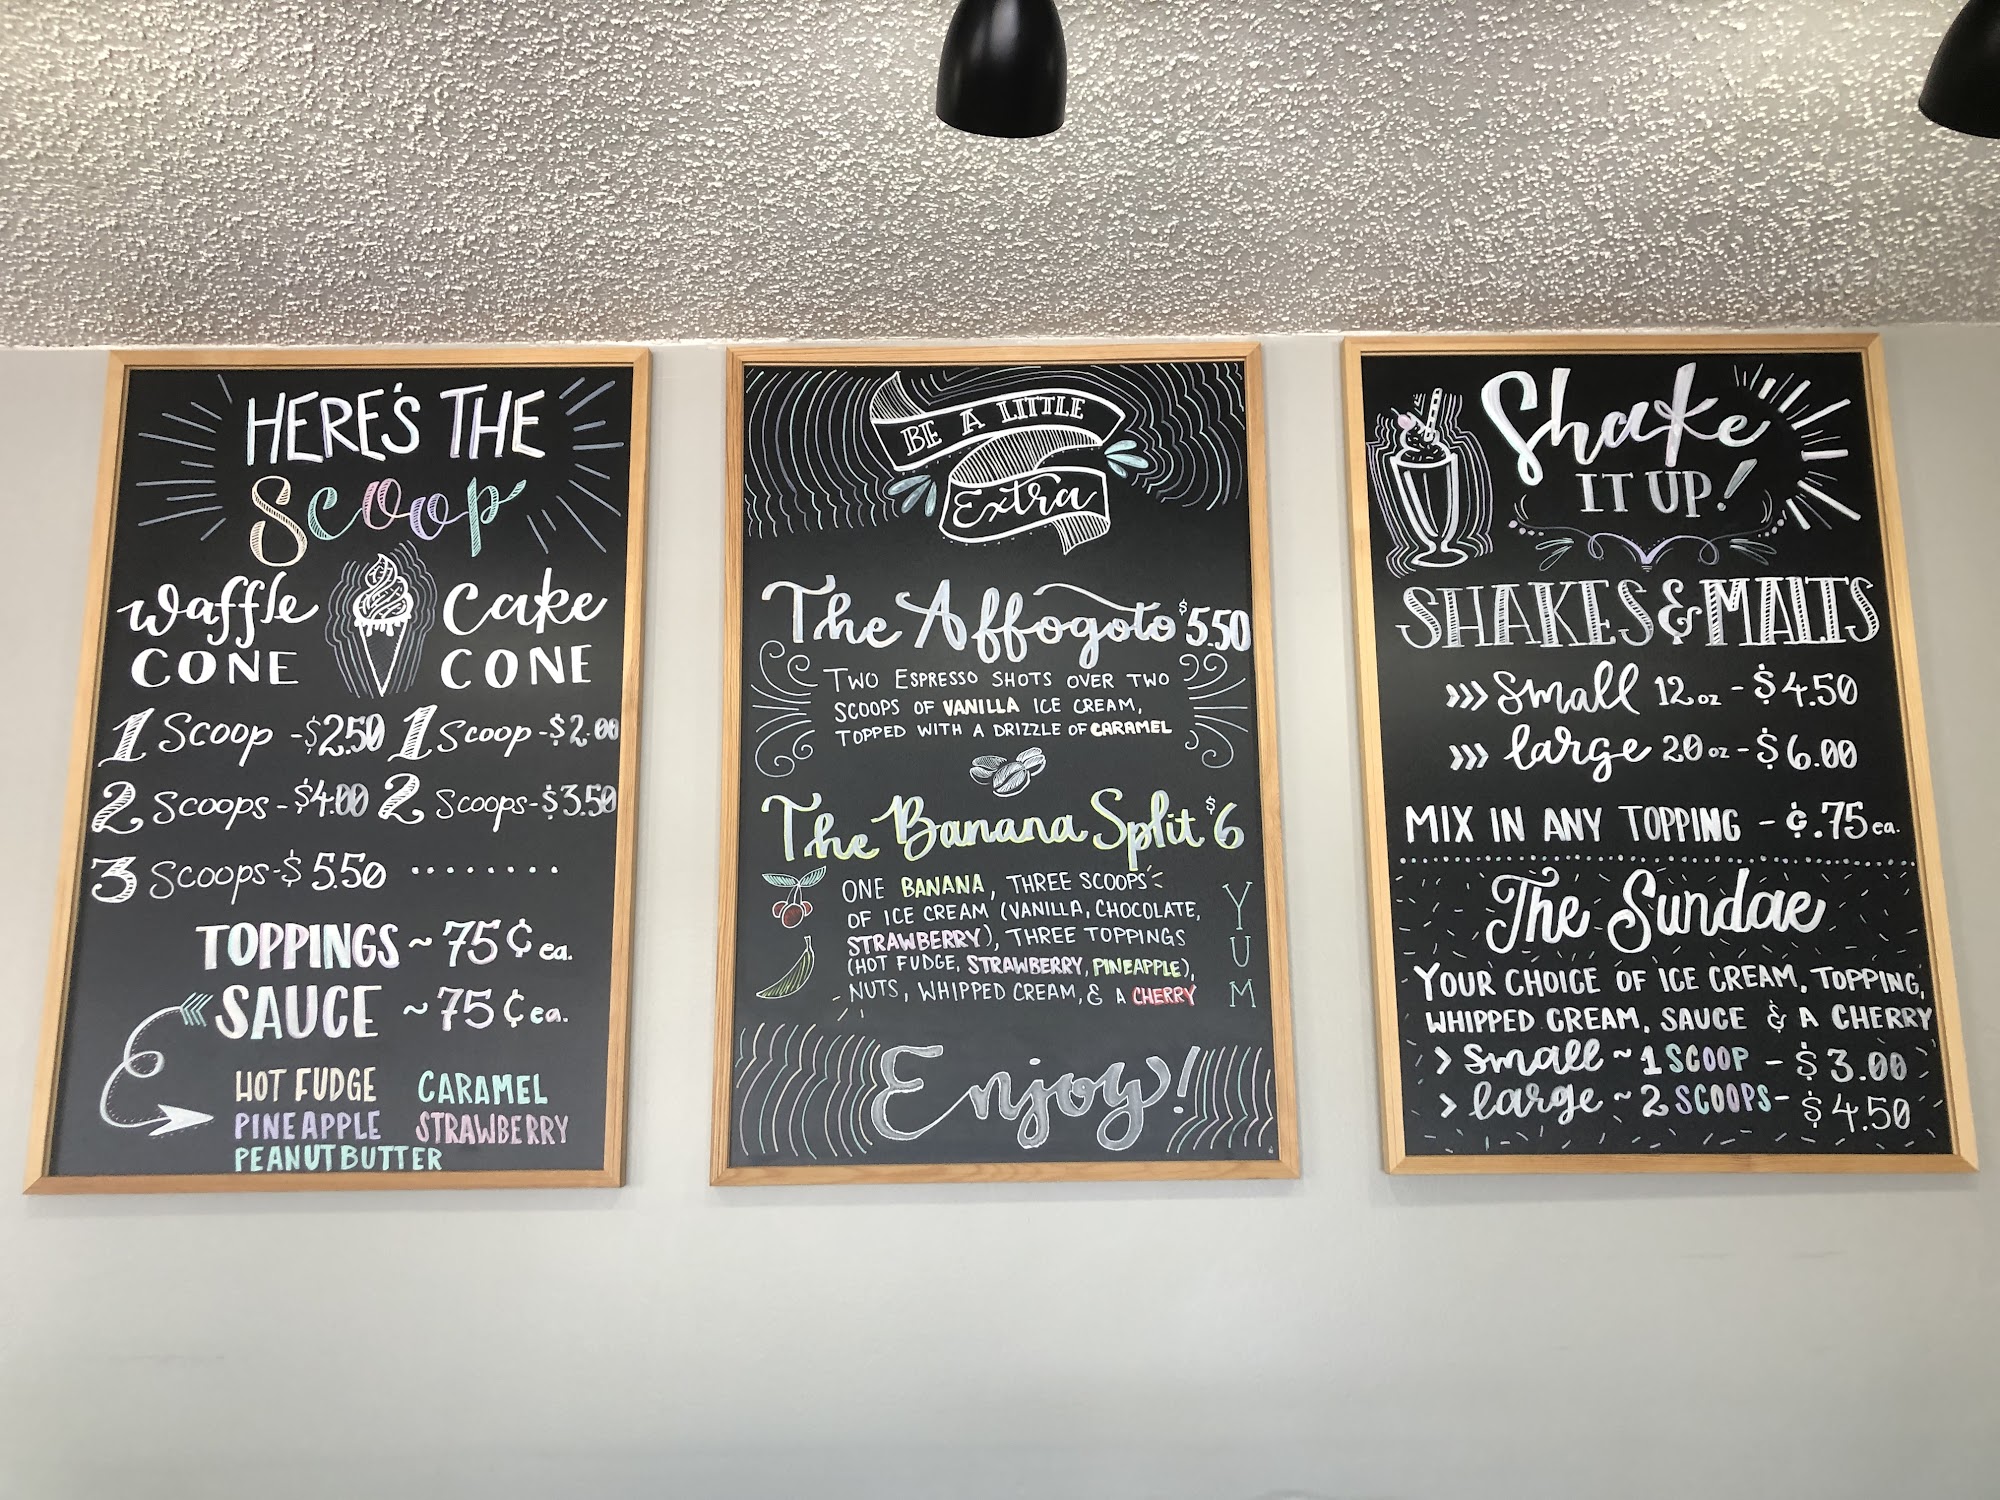 HERE'S THE
Scoop
Waffle
CONE
Cake
CONE
1 Scoop - $2.50
1 Scoop - $2.00
2 Scoops - $4.00
2 Scoops - $3.50
3 Scoops - $5.50 ........
TOPPINGS ~ 75¢ ea.
SAUCE ~ 75¢ ea.
HOT FUDGE CARAMEL
PINEAPPLE STRAWBERRY
PEANUT BUTTER
BE A LITTLE
Extra
The Affogoto $5.50
TWO ESPRESSO SHOTS OVER TWO
SCOOPS OF VANILLA ICE CREAM,
TOPPED WITH A DRIZZLE OF CARAMEL
The Banana Split $6
ONE BANANA, THREE SCOOPS
OF ICE CREAM (VANILLA, CHOCOLATE,
STRAWBERRY), THREE TOPPINGS
(HOT FUDGE, STRAWBERRY, PINEAPPLE),
NUTS, WHIPPED CREAM, & A CHERRY
YUM
Enjoy!
Shake
IT UP!
SHAKES & MALTS
>>> Small 12 oz - $4.50
>>> large 20 oz - $6.00
MIX IN ANY TOPPING - ¢.75 ea.
The Sundae
YOUR CHOICE OF ICE CREAM, TOPPING,
WHIPPED CREAM, SAUCE & A CHERRY
> Small ~ 1 SCOOP - $3.00
> large ~ 2 SCOOPS - $4.50